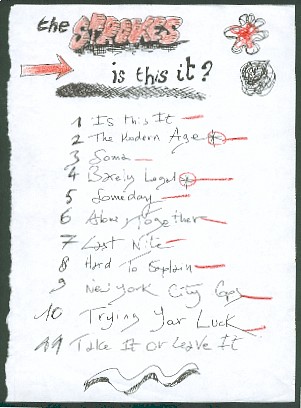 the STROKES
is this it?
1 Is this It
2 The Modern Age
3 Soma
4 Barely Legal
5 Someday
6 Alone Together
7 Last Nite
8 Hard To Explain
9 New York City Cops
10 Trying Your Luck
11 Take It Or Leave It